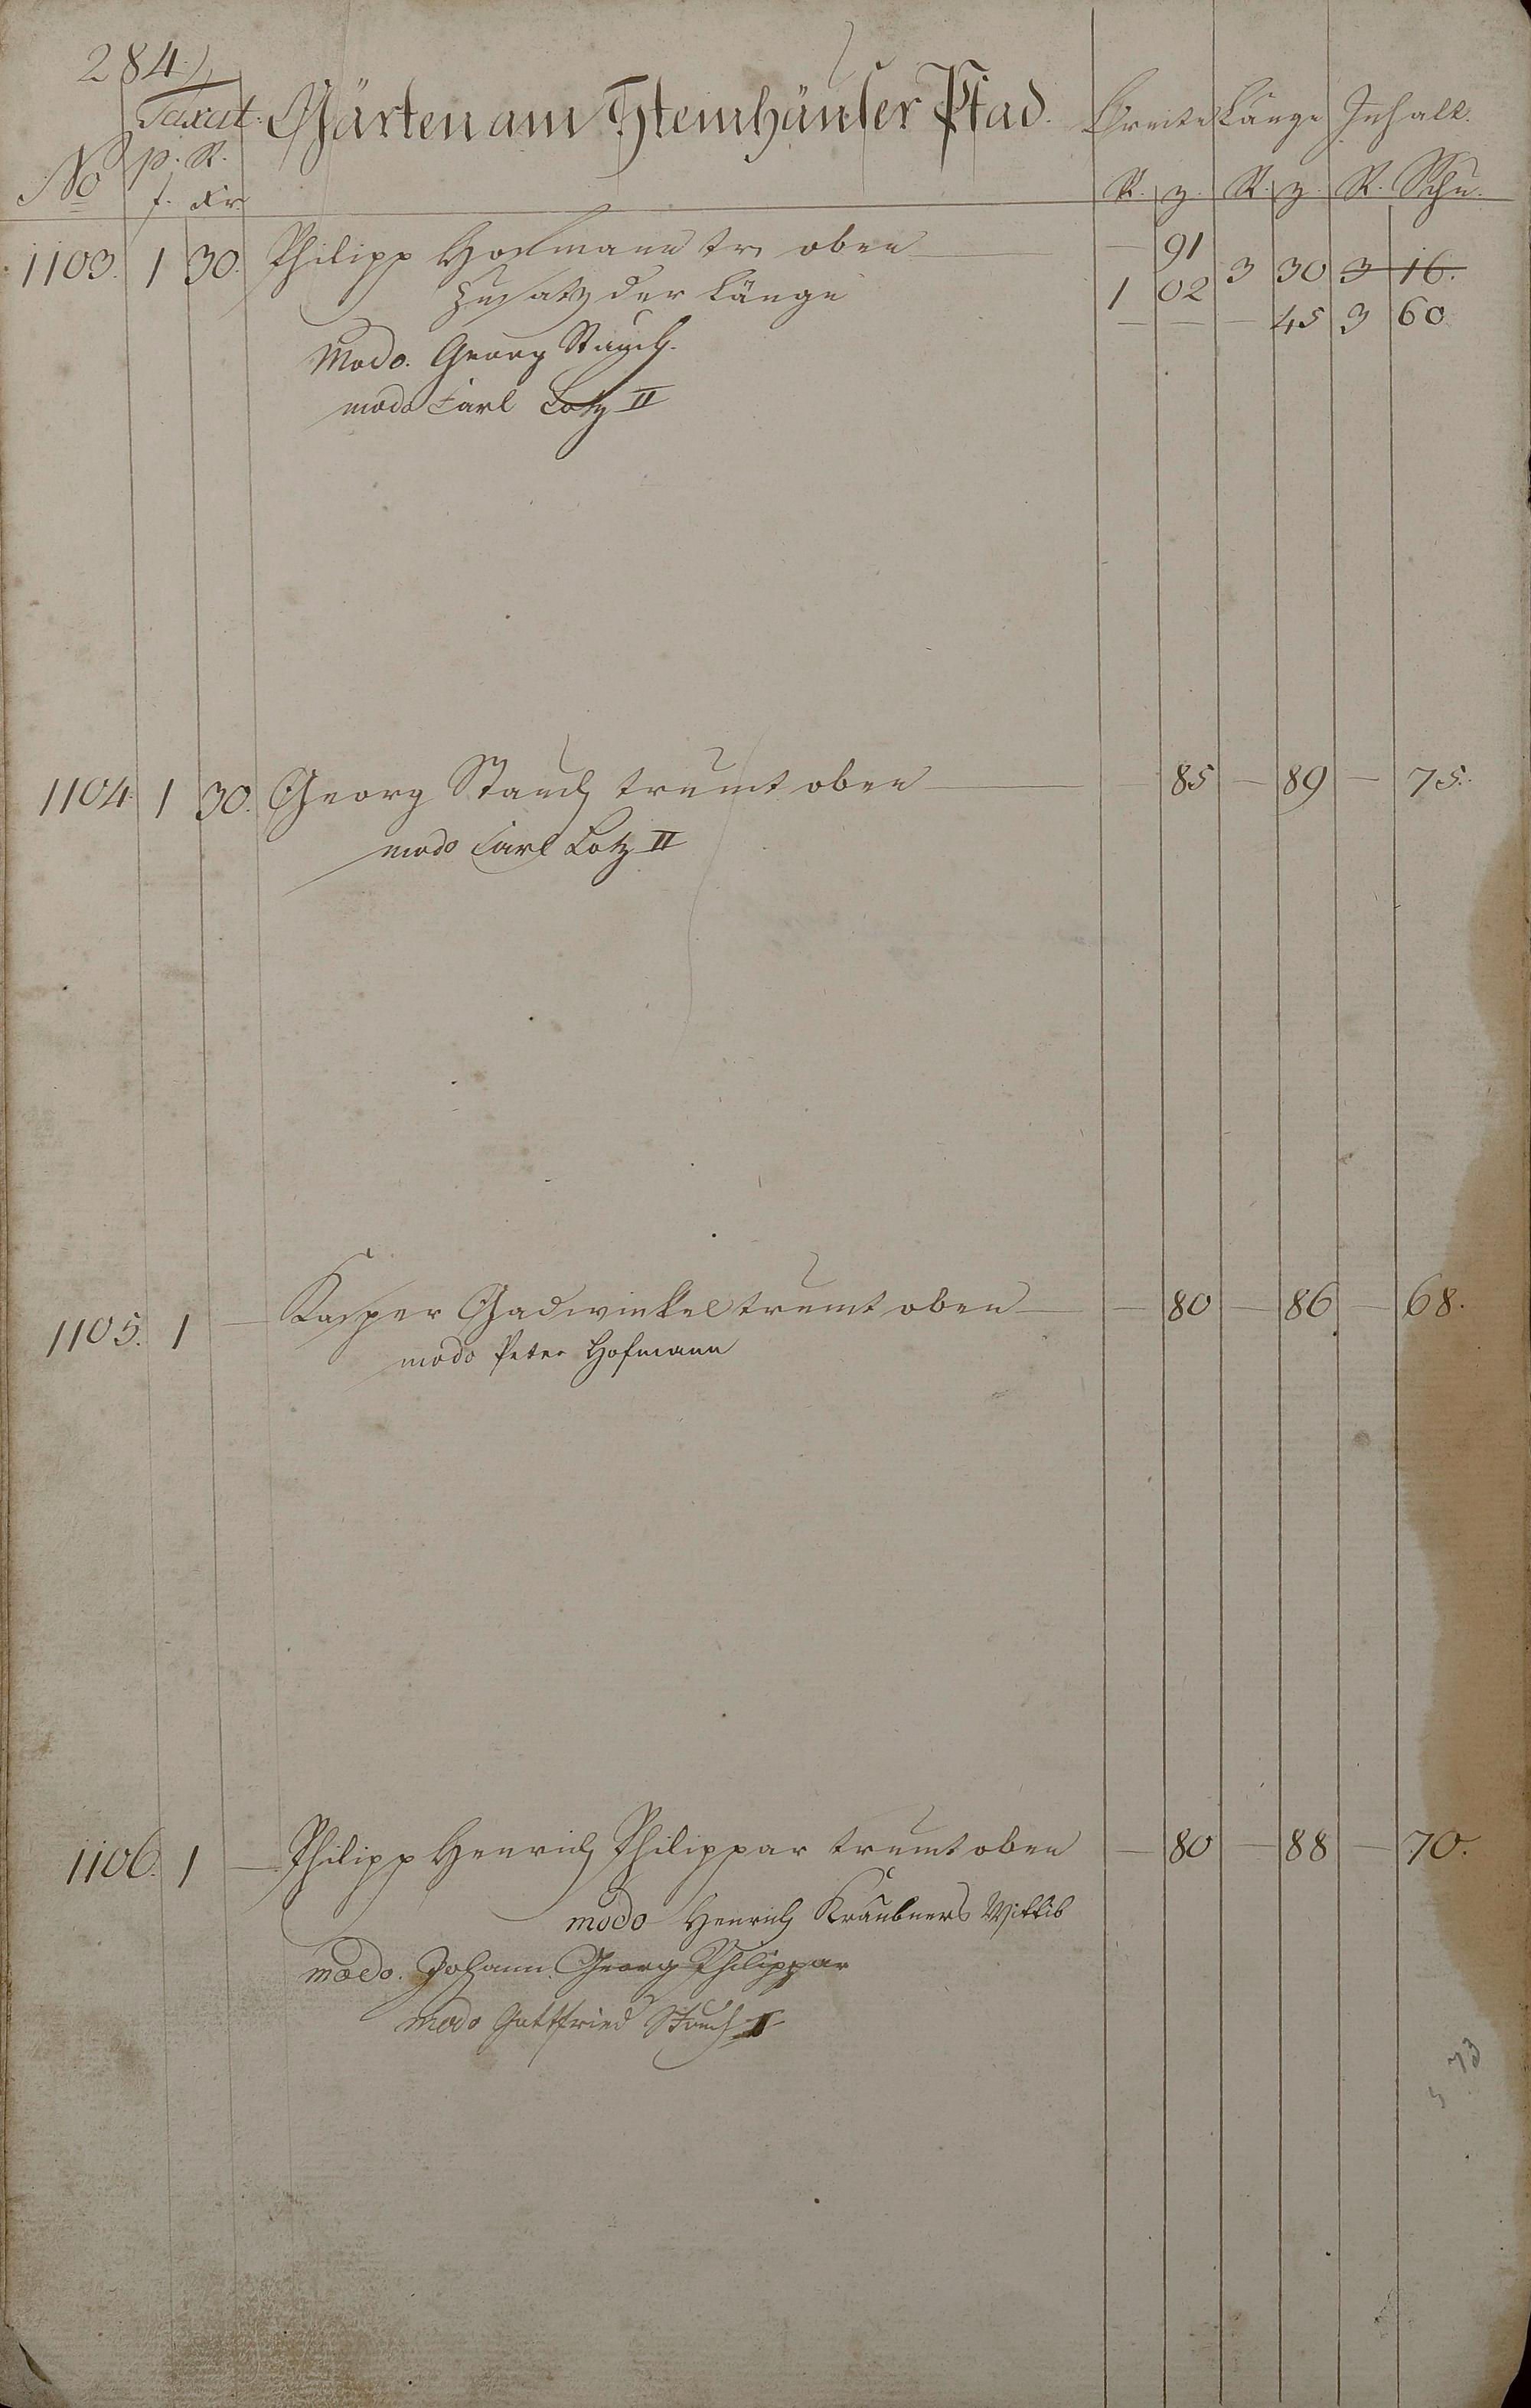 284.)
Taxat. Gärten am Steinhäuser Pfad. Breite Länge Inhalt.
No p. R. R. z. R. z. R. Schu.
f. Xr.
1103. 1 30. Philipp Hofmann tr oben — 91 3 30 3 16.
Zusatz der Länge 1 02
— — — 45 3 60
Modo. Georg Stauch.
modo Carl Lotz II
1104. 1 30. Georg Stauch trumt oben — 85 — 89 — 75.
modo Carl Lotz II
1105. 1 — Kasper Gadwinkel trumt oben — 80 — 86 — 68.
modo Peter Hofmann
1106. 1 — Philipp Henrich Philippar trumt oben — 80 — 88 — 70.
modo Henrich Kraubners Wittib
modo. Johann Georg Philippar
modo Gottfried Stauch II
73